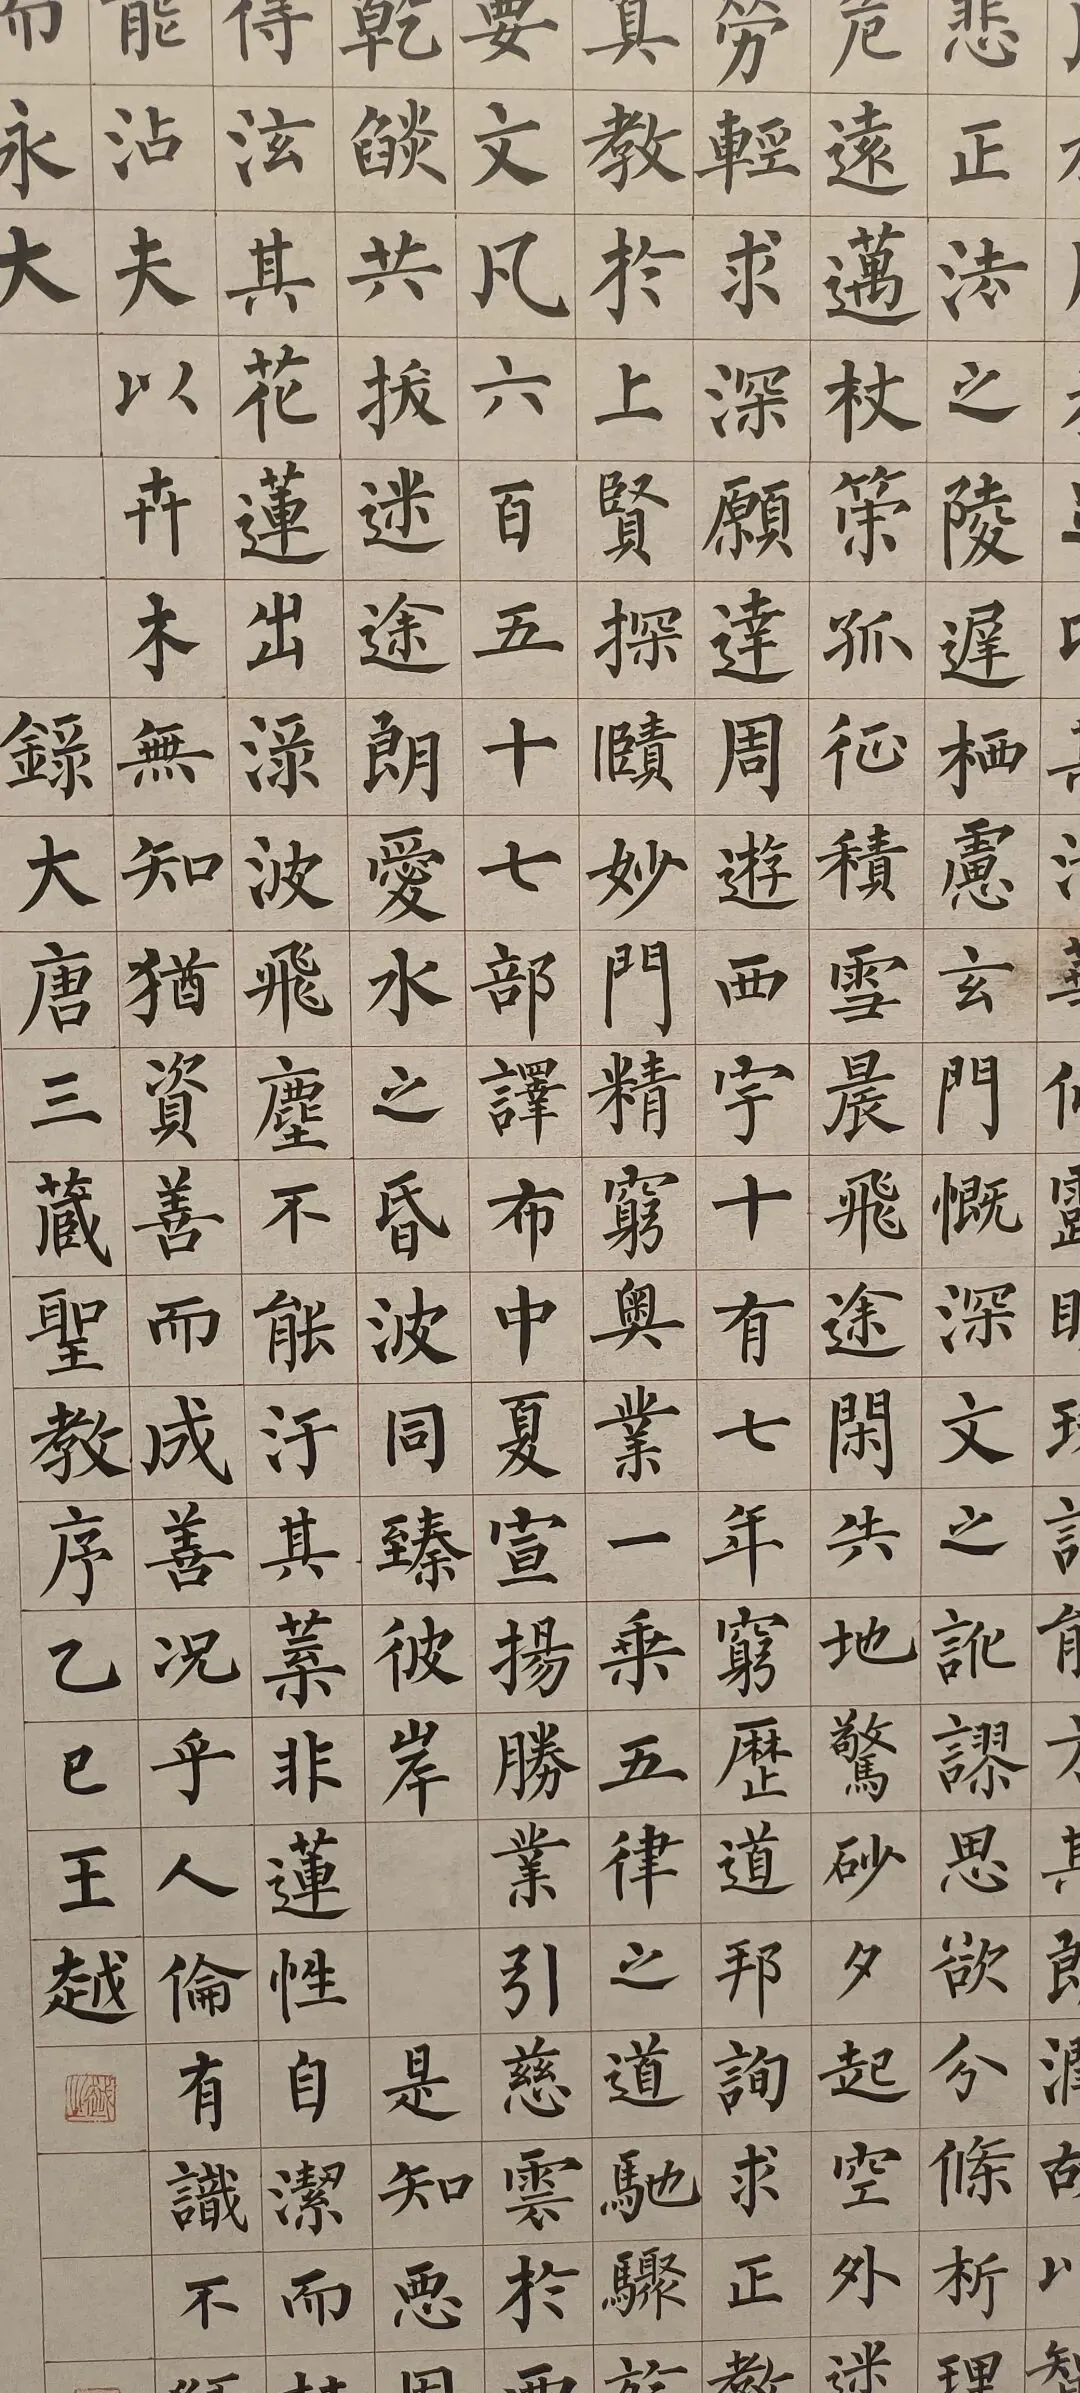 悲正法之陵遲栖慮玄門慨深文之訛謬思欲分條析理
危遠邁杖策孤征積雪晨飛途閑失地驚砂夕起空外迷
勞輕求深願達周遊西宇十有七年窮歷道邦詢求正教
真教於上賢探賾妙門精窮奧業一乘五律之道馳驟於
要文凡六百五十七部譯布中夏宣揚勝業引慈雲於西
乾燄共拔迷途朗愛水之昏波同臻彼岸 是知惡因
得泫其花蓮出渌波飛塵不能汙其葉非蓮性自潔而
能沾夫以卉木無知猶資善而成善況乎人倫有識不
而永大 錄大唐三藏聖教序乙巳王越